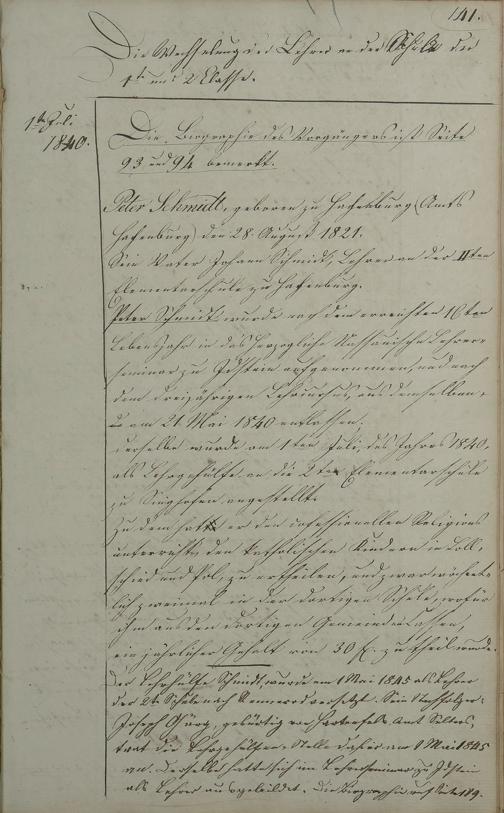 141.
Die Wechselung der Lehrer an der Schule der
1ten und 2 Classe.
1ten Juli
1840.
Die Biographie des Vorgängers ist Seite
93 und 94 bemerkt.
Peter Schmidt, geboren zu Hachenburg (Amts
Hachenburg) den 28. August 1821.
Sein Vater Johann Schmidt, Lehrer an der IIten
Elementarschule zu Hachenburg.
Peter Schmidt wurde nach dem erreichten 16ten
Lebens Jahr in das Herzogliche Nassauische Lehrer-
seminar zu Idstein aufgenommen, und nach
dem dreijährigen Lehrcursus, aus demselben,
am 21. Mai 1840 entlassen.
Derselbe wurde am 1ten Juli, des Jahres 1840,
als Lehrgehülfe an die 2te Elementarschule
zu Singhofen angestellt.
Zu dem hatte er den confessionellen Religions
unterricht, den katholischen Kindern in Loll-
schied und Pohl, zu ertheilen, und zwar wöchent-
lich zweimal in der dortigen Schule, wofür
ihm aus den dortigen Gemeindecassen,
ein jährlicher Gehalt von 30 fl. zu theil wurde.
Der Lehrgehülfe Schmidt, wurde am 1 Mai 1845 als Lehrer
der 2ten Schule nach Rennerod versetzt. Sein Nachfolger
Joseph Görg, gebürtig von Hartenfels Amt Selters,
trat die Lehrgehülfen-Stelle dahier am 1 Mai 1845
an. Derselbe hatte sich im Lehrerseminar zu Idstein
als Lehrer ausgebildet. Die Biographie auf Seite 189.